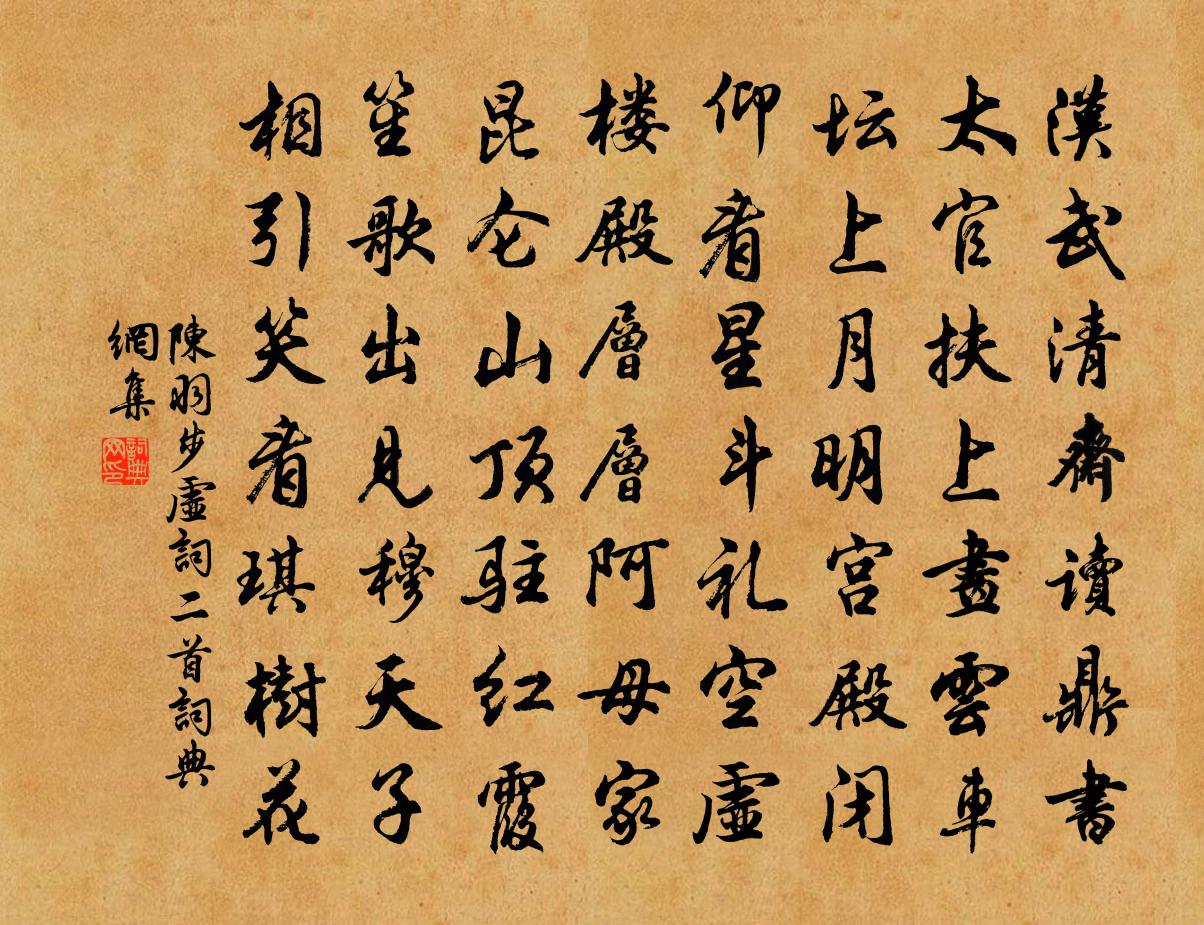 漢武清齋读鼎書
太官扶上畫雲車
坛上月明宫殿闭
仰看星斗礼空虚
楼殿層層阿母家
昆仑山顶驻红霞
笙歌出見穆天子
相引笑看琪樹花
陳羽步虚詞二首詞典
網集
詞典网印